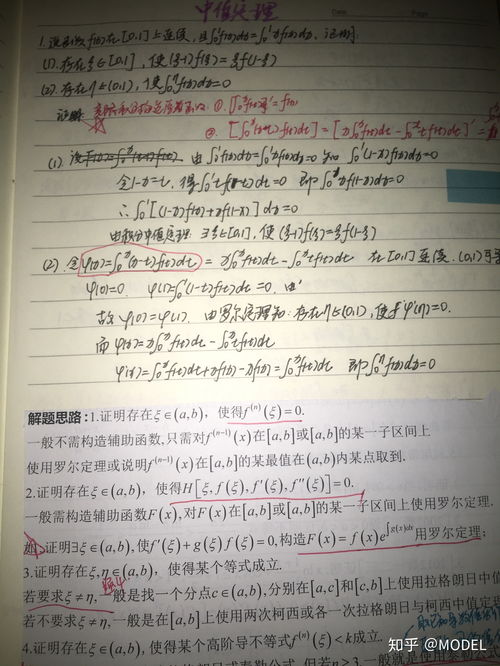 中值定理
Date. Page.
1. 设函数f(x)在[0,1]上连续, 且∫₀¹f(x)dx=∫₀¹xf(x)dx, 证明:
(1). 存在ξ∈[0,1], 使(ξ-1)f(ξ)=ξf(1-ξ)
(2). 存在η∈(0,1), 使∫₀^η f(x)dx=0
证明:
(1) 由∫₀¹f(x)dx=∫₀¹xf(x)dx=0 知 ∫₀¹(1-x)f(x)dx=0
令1-x=t, 得 即∫₀¹xf(1-x)dx=0
∴∫₀¹[(1-x)f(x)+xf(1-x)]dx=0
由积分中值定理: ∃ξ∈[0,1], 使(ξ-1)f(ξ)=ξf(1-ξ)
(2). 令φ(x)=∫₀ˣ(x-t)f(t)dt=x∫₀ˣf(t)dt-∫₀ˣtf(t)dt 在[0,1]连续, (0,1)可导
φ(0)=0 φ(1)=∫₀¹(1-t)f(t)dt=0.
故φ(0)=φ(1). 由罗尔定理知: 存在η∈(0,1), 使φ'(η)=0.
而φ(x)=x∫₀ˣf(t)dt-∫₀ˣtf(t)dt
φ'(x)=∫₀ˣf(t)dt+xf(x)-xf(x)=∫₀ˣf(t)dt 即∫₀^η f(x)dx=0
解题思路:1.证明存在ξ∈(a,b), 使得f⁽ⁿ⁾(ξ)=0.
一般不需构造辅助函数,只需对f⁽ⁿ⁻¹⁾(x)在[a,b]或[a,b]的某一子区间上
使用罗尔定理或说明f⁽ⁿ⁻¹⁾(x)在[a,b]的某最值在(a,b)内某点取到.
2.证明存在ξ∈(a,b), 使得H[ξ,f(ξ),f′(ξ),f″(ξ)]=0.
一般需构造辅助函数F(x),对F(x)在[a,b]或[a,b]的某一子区间上使用罗尔定理.
如:证明∃ξ∈(a,b),使f′(ξ)+g(ξ)f(ξ)=0,构造F(x)=f(x)e^∫g(x)dx用罗尔定理;
3.证明存在ξ,η∈(a,b), 使得某个等式成立.
若要求ξ≠η,一般是找一个分点c∈(a,b),分别在[a,c]和[c,b]上使用拉格朗日中值
若不要求ξ≠η,一般是在[a,b]上使用两次柯西或各一次拉格朗日与柯西中值定
4.证明存在ξ∈(a,b), 使得某个高阶导不等式f⁽ⁿ⁾(ξ)<k成立.
知乎 @MODEL